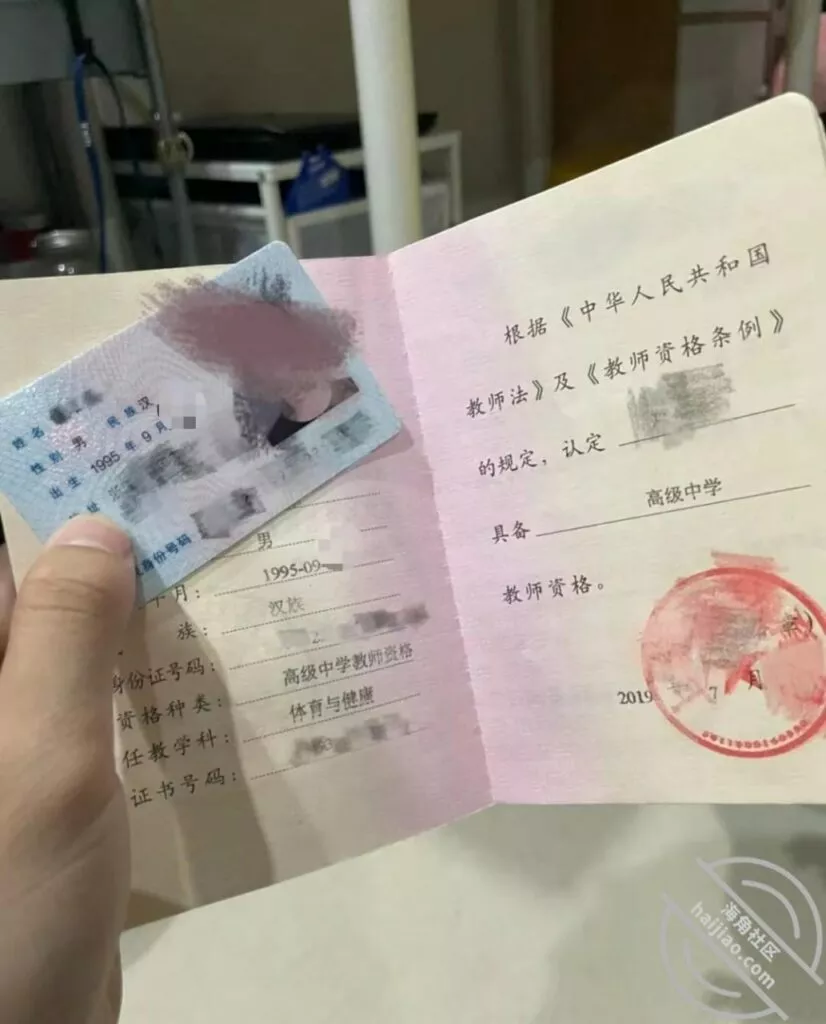 姓名
性别 男 民族 汉
出生 1995 年 9 月
址
身份号码
男
年月：
1995-09-
族：
汉族
身份证号码：
资格种类：
高级中学教师资格
任教学科：
体育与健康
证书号码：
根据《中华人民共和国
教师法》及《教师资格条例》
的规定，认定
具备 高级中学
教师资格。
2019 7 月
海角社区
haijiao.com